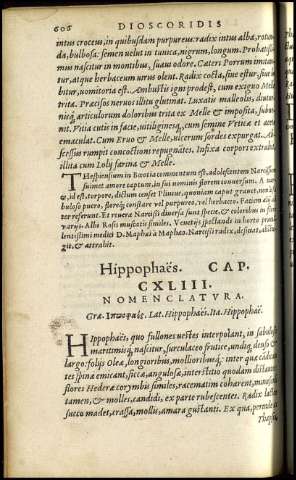 606 DIOSCORIDIS
intus croceus, in quibusdam purpureus: radix intus alba, rotun-
da, bulbosa: semen velut in tunica, nigrum, longum. Probatissi-
mus nascitur in montibus, suavi odore. Cæteri Porrum imitan-
tur, atque herbaceum virus olent. Radix cocta, sive estur, sive bi-
bitur, vomitoria est. Ambustis igni prodest, cum exiguo Melle
trita. Præcisos nervos illitu glutinat. Luxatis malleolis, diutur-
nisq; articulorum doloribus trita ex Melle & imposita, iuba-
nt. Vitia cutis in facie, vitiligines, cum semine Vrticæ et aceto
emaculat. Cum Ervo & Melle, ulcerum sordes expurgat. Ab-
scessus rumpit concoctioni repugnantes. Infixa corpori extrahit
illita cum Lolij farina & Melle.
THespiensium in Bœotia commentum est, adolescentem Narcissum
sui amore captum, in sui nominis florem conversum. A
id est, torpore, dictum censet Plinius, quoniam caput gravet,
buloso puero, floreq; constare vel purpureo, vel herbaceo.
ter referunt. Et revera Narcissi diversa sunt specie, & coloribus in flore
varij. Albo Rosis muscatis similes. Venetijs spectando in horto præ-
lentissimi medici D. Maphæi à Maphæo. Narcissi radix, desiccat, abster-
git, & attrahit.
Hippophaës. CAP.
CXLIII.
NOMENCLATVRA.
Græ. Ἱπποφαὲς. Lat. Hippophaës. Ita. Hippophaë.
HIppophaës, quo fullones vestes interpolant, in sabulosis
maritimisq; nascitur, surculaceo frutice, undiq; denso &
largo: folijs Oleæ, longioribus, mollioribusq;: inter quæ cádican-
tes spinæ emicant, siccæ, angulosæ, interstitio quodam distantes
flores Hederæ corymbis similes, racematim cohærent,
tamen, & molles, candidi, ex parte rubescentes. Radix lacteo
succo madet, crassa, mollis, amara gustanti. Ex qua, perinde